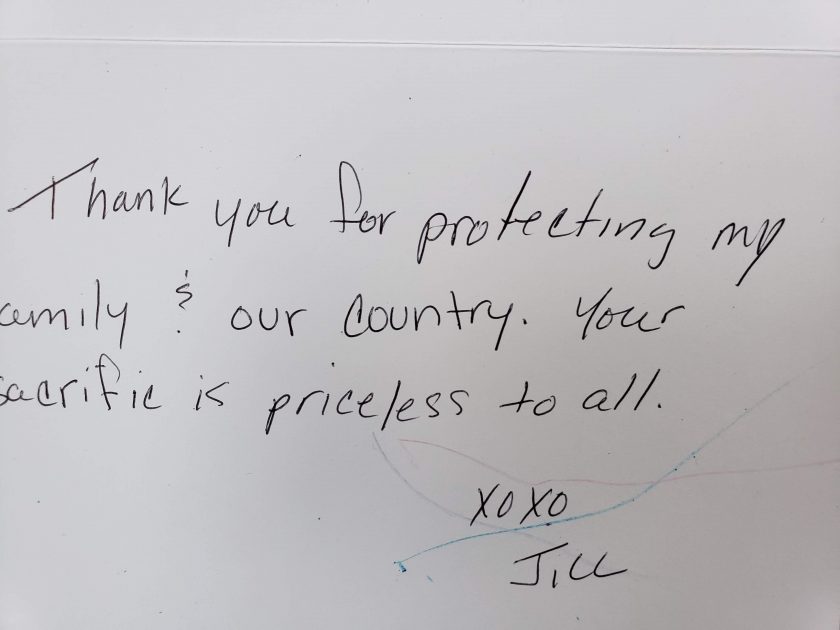 Thank you for protecting my
amily & our country. Your
sacrific is priceless to all.
XOXO
Jill